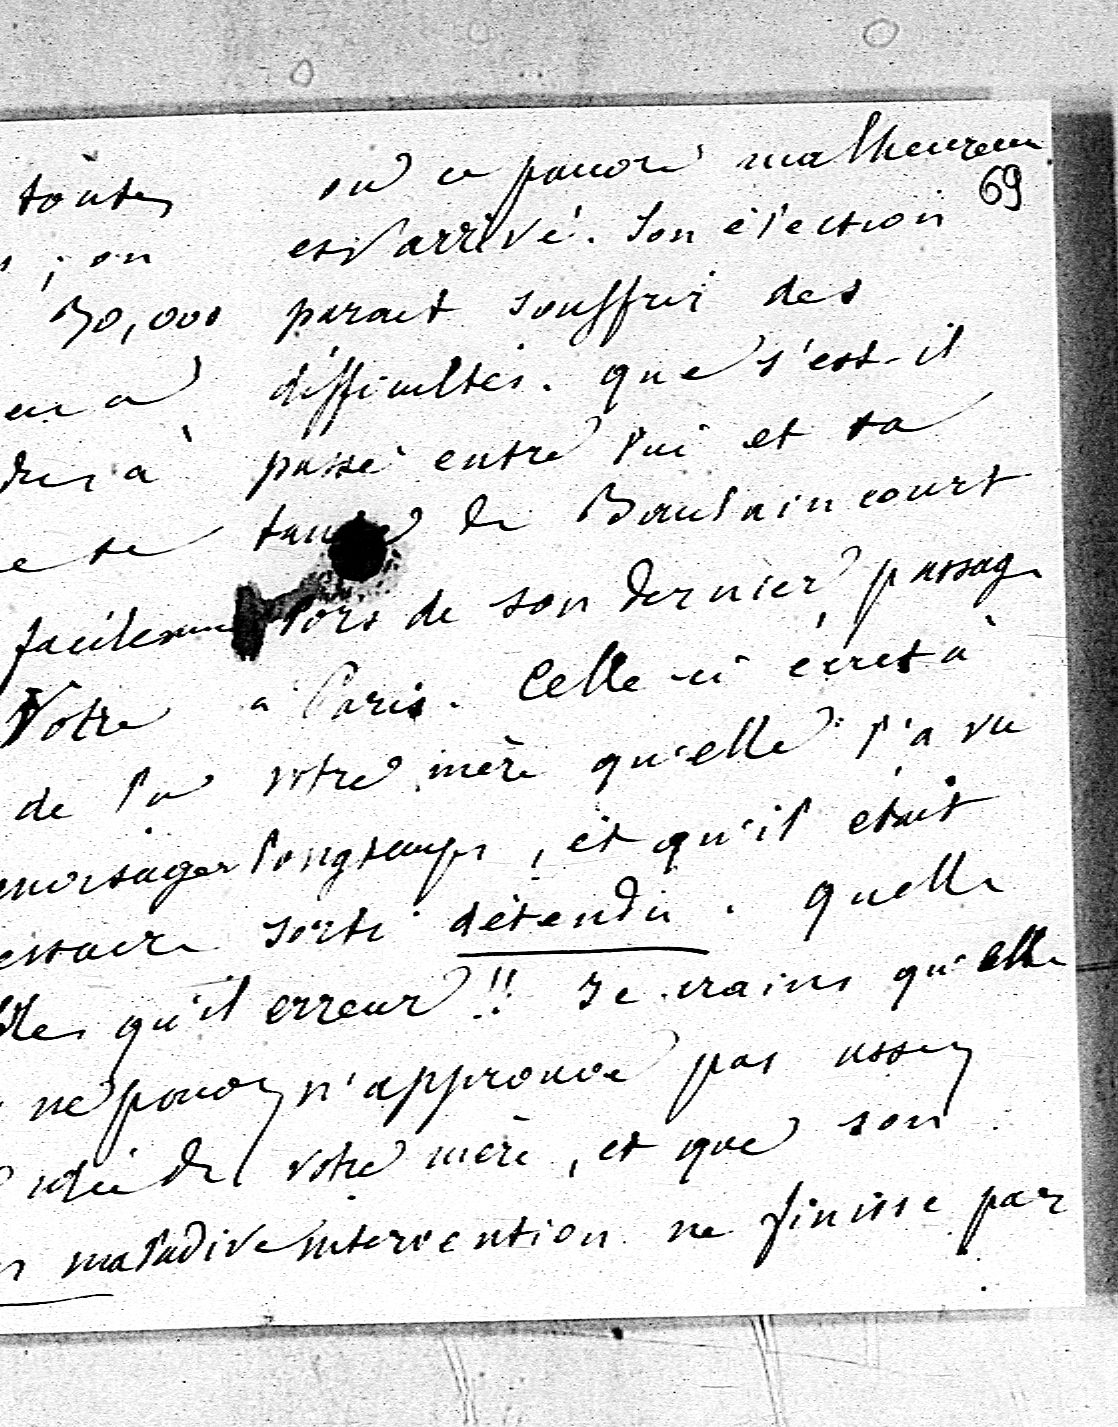 toutes
; on
30,000
en a
à
e se
facilement
Votre
de la
envisager
essaire
qu'il
ne pouvez
idée de
maladive
69
où ce pauvre malheureux
est arrivé. Son élection
parait souffrir des
difficultés. que s'est-il
passé entre lui et sa
tante de Baulaincourt
lors de son dernier passage
à Paris. Celle-ci écrit à
votre mère qu'elle l'a vu
longtemps, et qu'il était
sorti détendu. quelle
erreur !! Je crains qu'elle
n'approuve pas assez
votre mère, et que son
intervention ne finisse par